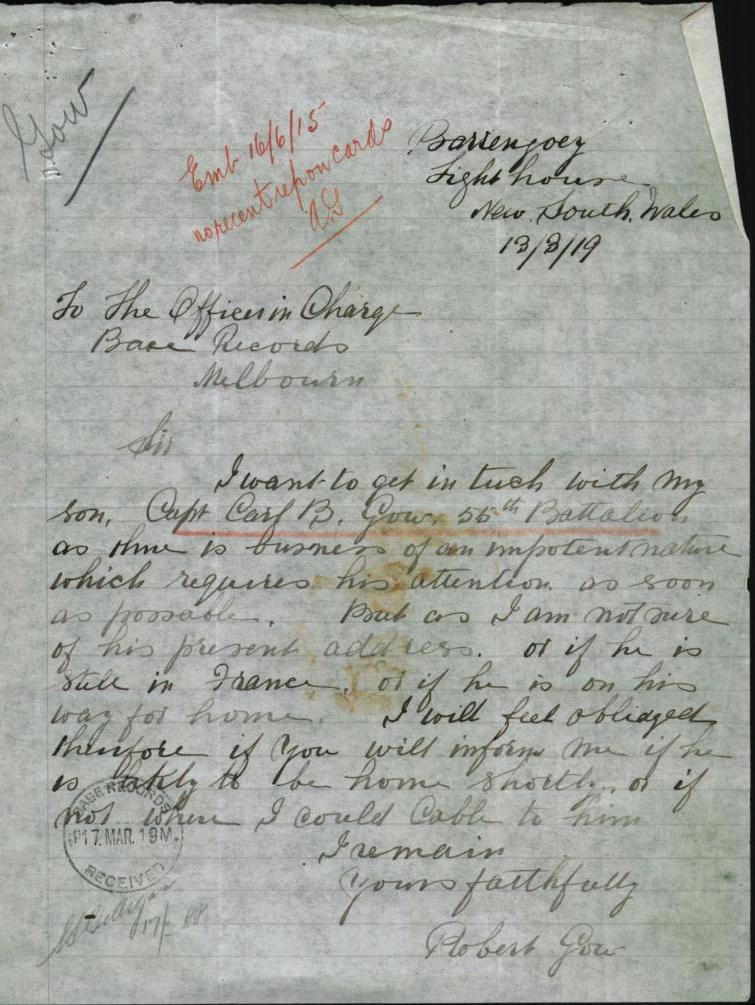 Gow
Emb 16/6/15
no recent rep on cards
Barrenjoey
Light house
New. South. Wales
13/3/19
To The Officer in Charge
Base Records
Melbourn
Sir
I want to get in tuch with my
son, Capt Carl B. Gow, 55th Battalion
as thre is busness of an impotent nature
which requires his attention as soon
as possable. But as I am not sure
of his present address. or if he is
still in France, or if he is on his
way for home. I will feel oblidged
therefore if You will inform me if he
is likly to be home shortly, or if
not where I could Cable to him
I remain
Yours faithfully
Robert Gow
BASE RECORDS
17. MAR. 19
RECEIVED